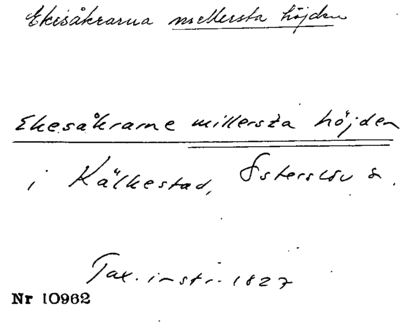 Ekisåkrarna mellersta höjden
Ekesåkrarne millersta höjden
i Kälkestad, Österslöv s.
Tax. instr. 1827
Nr 10962